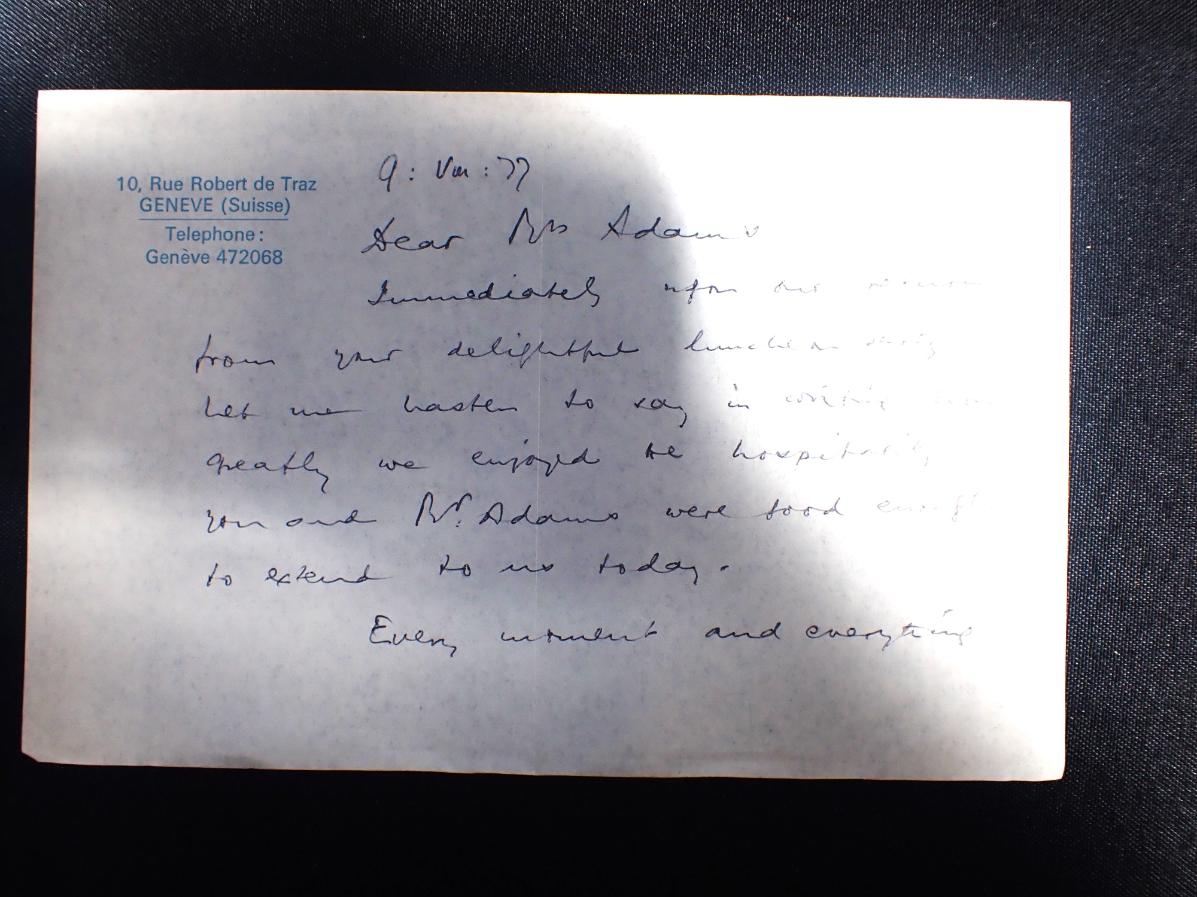 10, Rue Robert de Traz
GENEVE (Suisse)
Telephone:
Genève 472068
9: VIII: 77
Dear Mrs Adams
Immediately upon our return
from your delightful luncheon
let me hasten to say in writing how
greatly we enjoyed the hospitality
you and Mr. Adams were good enough
to extend to us today.
Every moment and everything